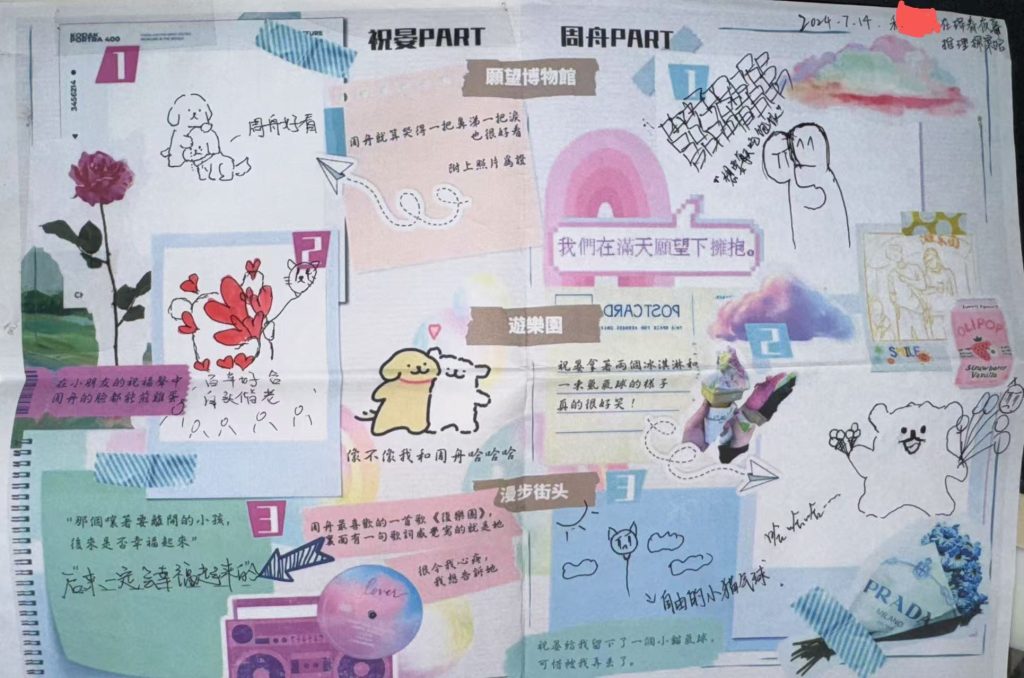 KODAK
PORTRA 400
3456214
祝晏PART
周舟PART
2024.7.14.
願望博物館
1
周舟好看
周舟就算笑得一把鼻涕一把淚
也很好看
附上照片為證
1
我們在滿天願望下擁抱。
2
百年好合
白頭偕老
在小朋友的祝福聲中
周舟的臉都能煎雞蛋
遊樂園
像不像我和周舟哈哈哈
POSTCARD
祝晏拿著兩個冰淇淋和
一束氣氣球的樣子
真的很好笑！
2
SMILE
OLIPOP
Strawberry
Vanilla
哈哈哈~
漫步街头
3
"那個嚷著要離開的小孩，
後來是否幸福起來"
后来一定会幸福起来的
周舟最喜歡的一首歌《後樂園》，
裏面有一句歌詞感覺寫的就是她
很令我心疼，
我想告訴她
lover
3
自由的小猫气球.
祝晏給我留下了一個小貓氣球，
可惜被我弄丟了。
PRADA
MILANO